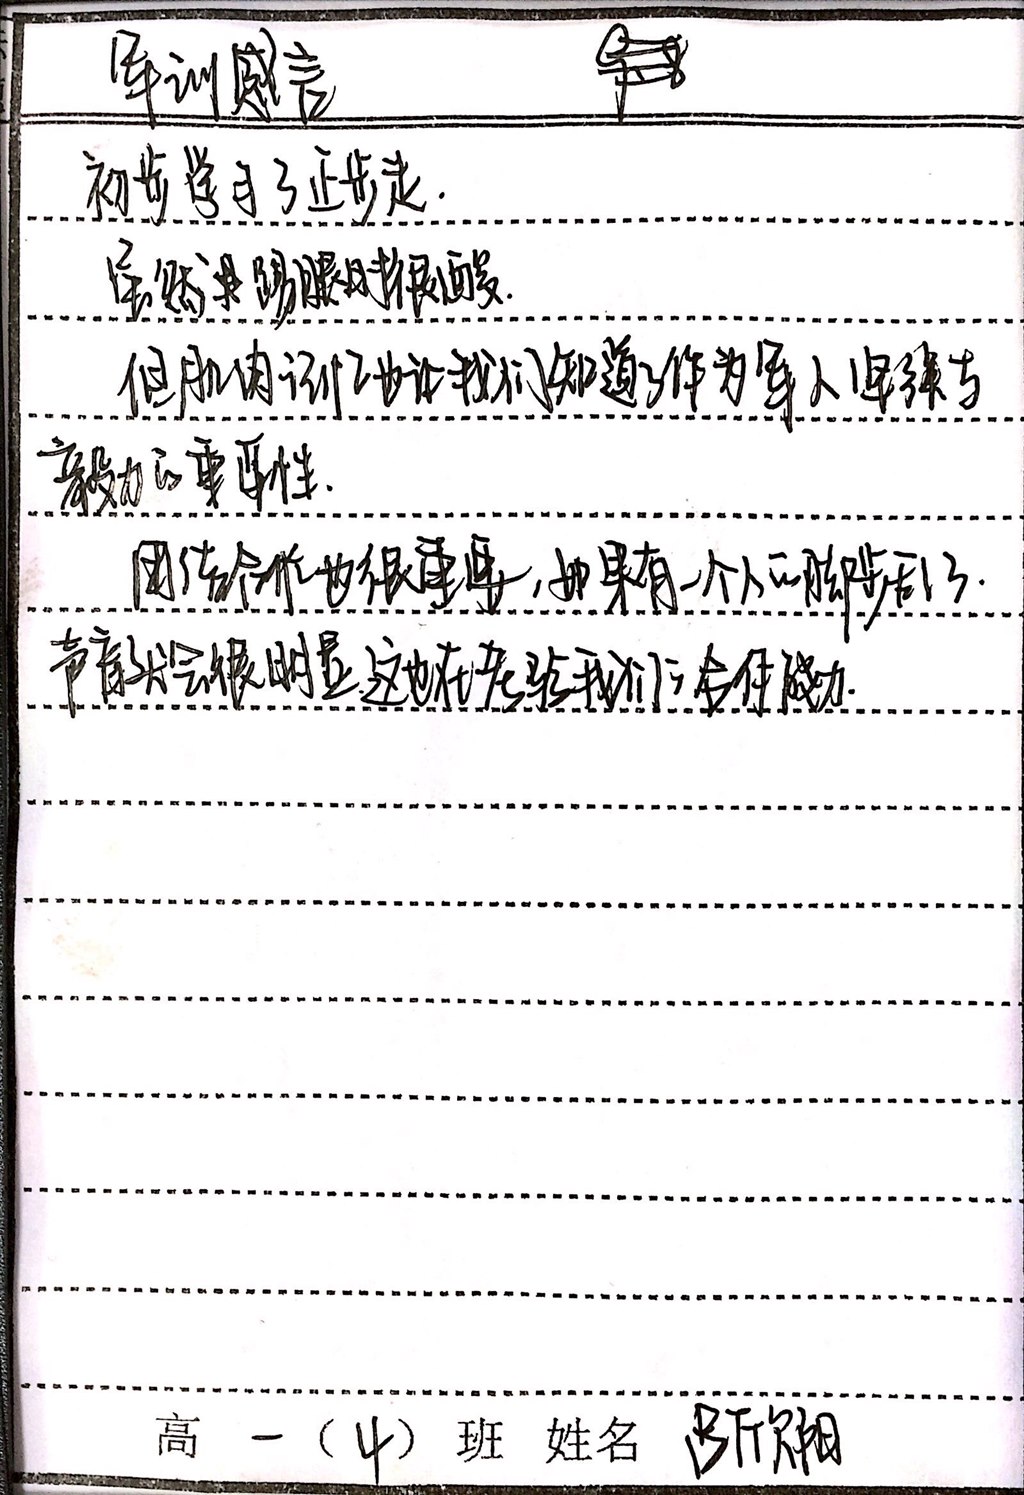 军训感言
初步学习了正步走.
虽然踢腿时很酸.
但肌肉记忆也让我们知道了作为军人坚强与
毅力的重要性.
团结合作也很重要,如果有一个人的脚步后了.
声音就会很明显.这也在考验我们的合作能力.
高一(4)班 姓名 阳